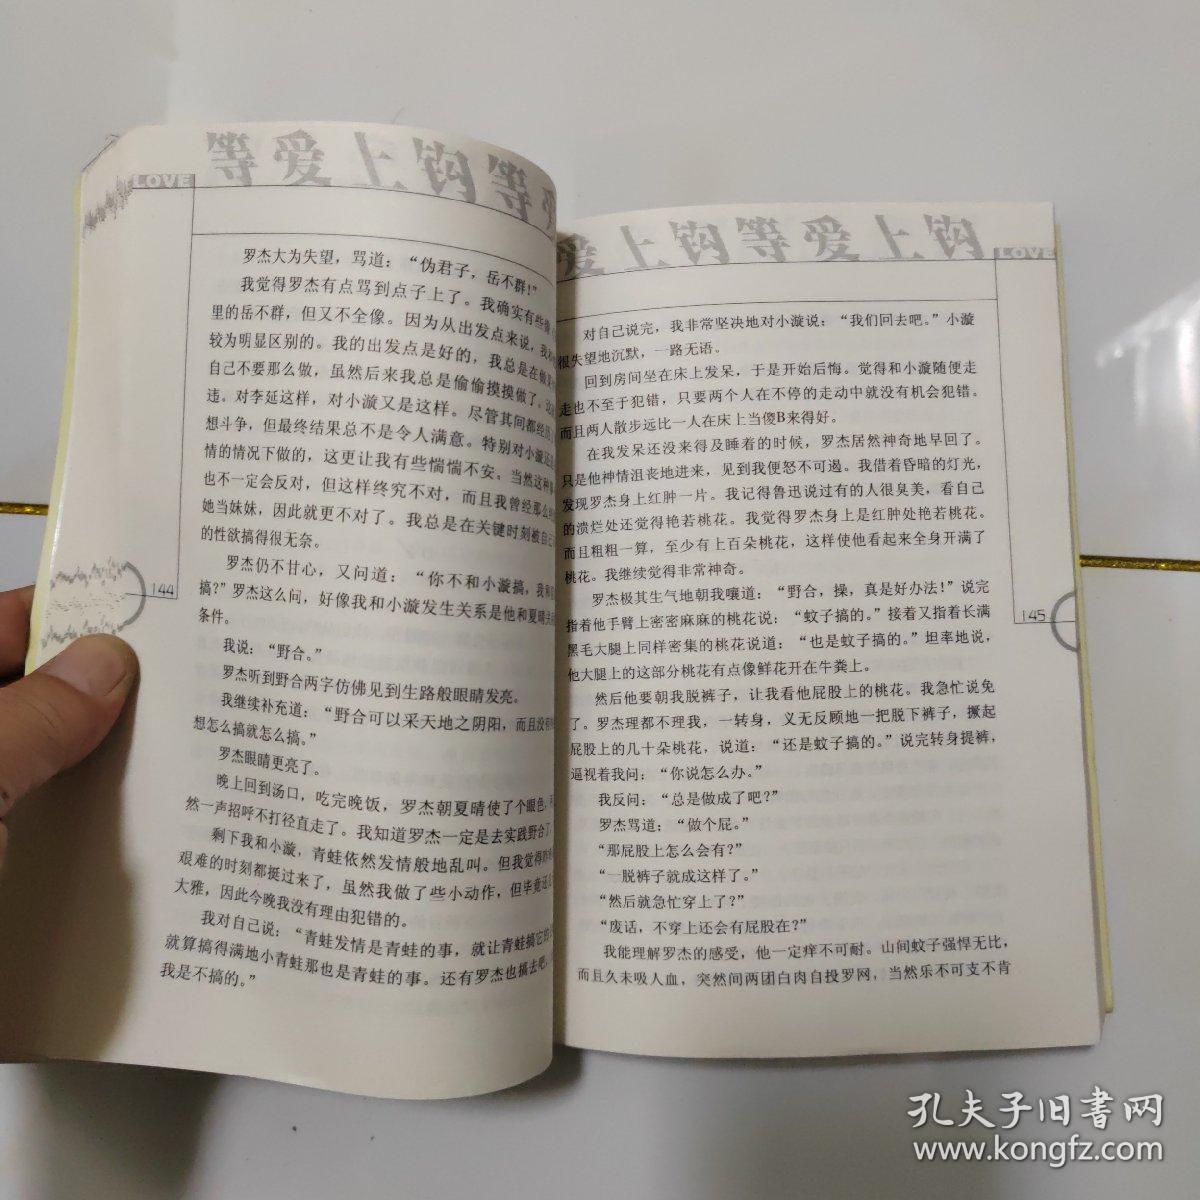 等爱上钩等爱
LOVE
罗杰大为失望，骂道：“伪君子，岳不群！”
我觉得罗杰有点骂到点子上了。我确实有些像
里的岳不群，但又不全像。因为从出发点来说，我和
较为明显区别的。我的出发点是好的，我总是在做某
自己不要那么做，虽然后来我总是偷偷摸摸做了。
违。对李延这样，对小漩又是这样。尽管其间都经历
想斗争，但最终结果总不是令人满意。特别对小漩还是
情的情况下做的，这更让我有些惴惴不安。当然这种事
也不一定会反对，但这样终究不对，而且我曾经那么
她当妹妹，因此就更不对了。我总是在关键时刻被自己
的性欲搞得很无奈。
罗杰仍不甘心，又问道：“你不和小漩搞，我和
搞？”罗杰这么问，好像我和小漩发生关系是他和夏晴
条件。
我说：“野合。”
罗杰听到野合两字仿佛见到生路般眼睛发亮。
我继续补充道：“野合可以采天地之阴阳，而且没有
想怎么搞就怎么搞。”
罗杰眼睛更亮了。
晚上回到汤口，吃完晚饭，罗杰朝夏晴使了个眼色，
然一声招呼不打径直走了。我知道罗杰一定是去实践野合了
剩下我和小漩，青蛙依然发情般地乱叫。但我觉得
艰难的时刻都挺过来了，虽然我做了些小动作，但毕竟
大雅，因此今晚我没有理由犯错的。
我对自己说：“青蛙发情是青蛙的事，就让青蛙搞它的
就算搞得满地小青蛙那也是青蛙的事。还有罗杰也搞去吧，
我是不搞的。”
144
爱上钩等爱上钩
LOVE
对自己说完，我非常坚决地对小漩说：“我们回去吧。”小漩
很失望地沉默，一路无语。
回到房间坐在床上发呆，于是开始后悔。觉得和小漩随便走
走也不至于犯错，只要两个人在不停的走动中就没有机会犯错。
而且两人散步远比一人在床上当傻B来得好。
在我发呆还没来得及睡着的时候，罗杰居然神奇地早回了。
只是他神情沮丧地进来，见到我便怒不可遏。我借着昏暗的灯光，
发现罗杰身上红肿一片。我记得鲁迅说过有的人很臭美，看自己
的溃烂处还觉得艳若桃花。我觉得罗杰身上是红肿处艳若桃花。
而且粗粗一算，至少有上百朵桃花，这样使他看起来全身开满了
桃花。我继续觉得非常神奇。
罗杰极其生气地朝我嚷道：“野合，操，真是好办法！”说完
指着他手臂上密密麻麻的桃花说：“蚊子搞的。”接着又指着长满
黑毛大腿上同样密集的桃花说道：“也是蚊子搞的。”坦率地说，
他大腿上的这部分桃花有点像鲜花开在牛粪上。
然后他要朝我脱裤子，让我看他屁股上的桃花。我急忙说免
了。罗杰理都不理我，一转身，义无反顾地一把脱下裤子，撅起
屁股上的几十朵桃花，说道：“还是蚊子搞的。”说完转身提裤，
逼视着我问：“你说怎么办。”
我反问：“总是做成了吧？”
罗杰骂道：“做个屁。”
“那屁股上怎么会有？”
“一脱裤子就成这样了。”
“然后就急忙穿上了？”
“废话，不穿上还会有屁股在？”
我能理解罗杰的感受，他一定痒不可耐。山间蚊子强悍无比，
而且久未吸人血，突然间两团白肉自投罗网，当然乐不可支不肯
145
孔夫子旧书网
www.kongfz.com